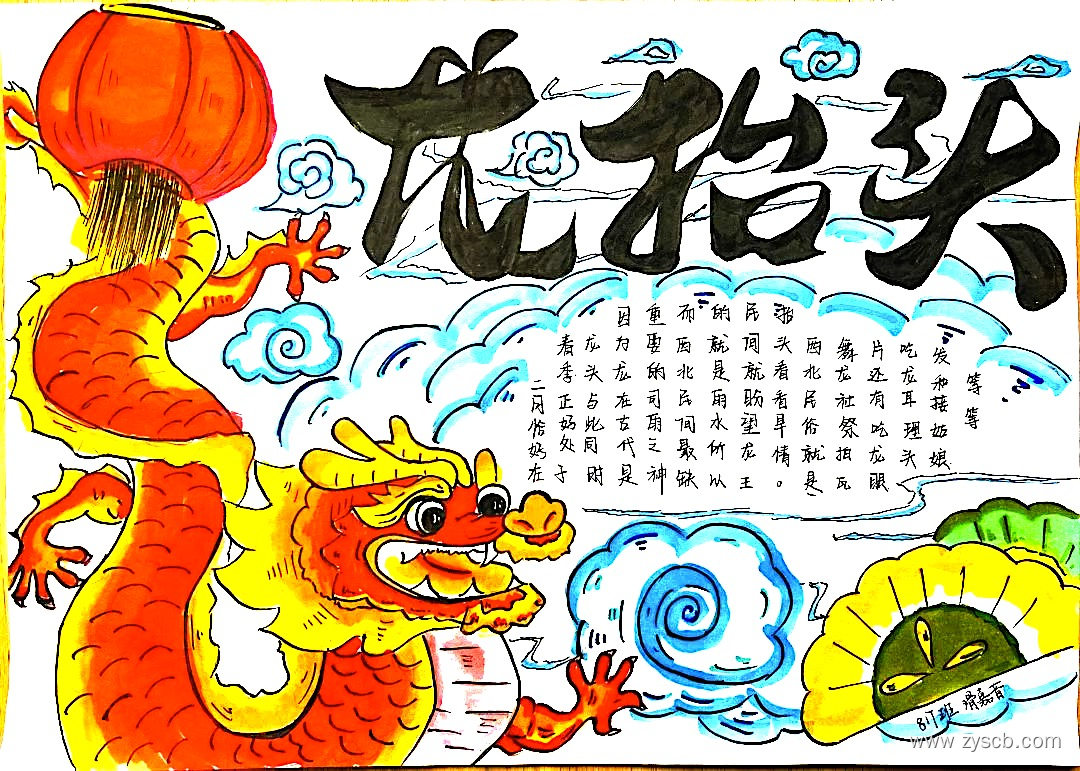 龙抬头
二月恰好在
春季正好处于
龙头与此同时
因为龙在古代是
重要的司雨之神
而西北民间最缺
的就是雨水所以
民间就盼望龙王
抬头看看旱情。
西北民俗就是
舞龙社祭拍瓦
片还有吃龙眼
吃龙耳理头
发和接姑娘
等等
www.zyscb.com